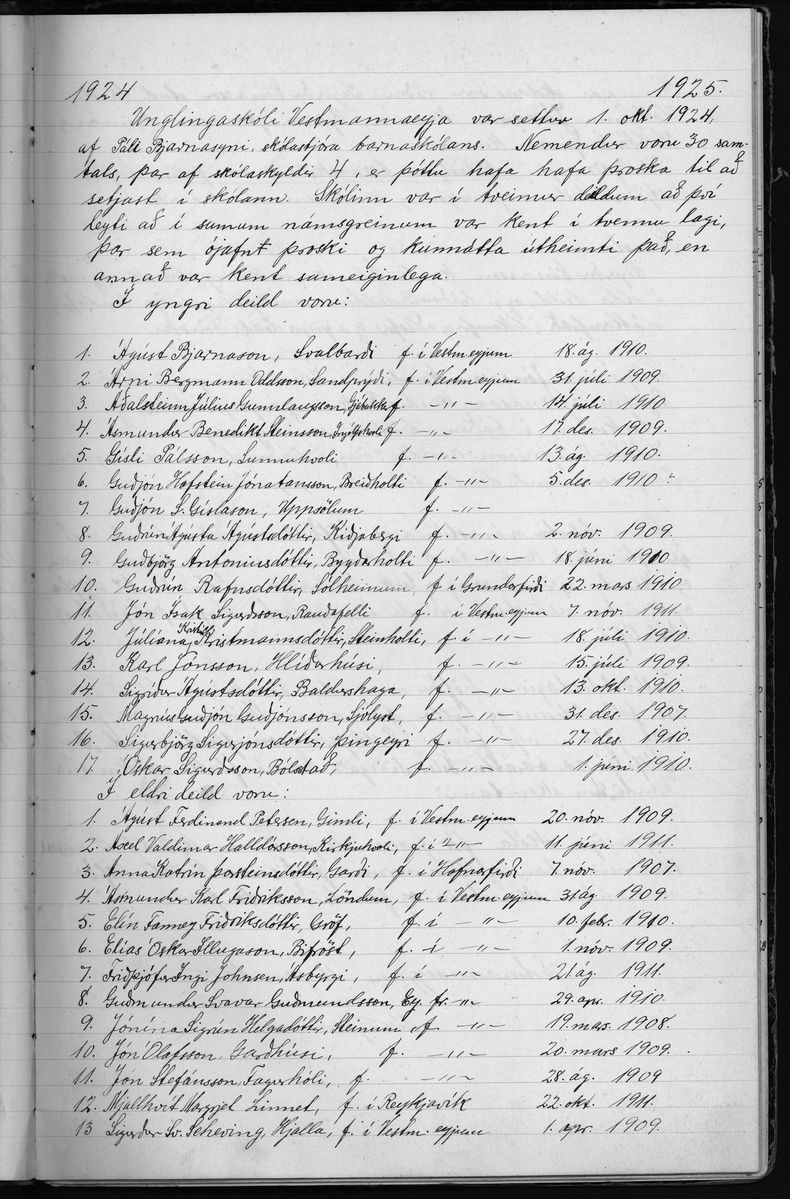 1924 1925.
Unglingaskóli Vestmannaeyja var settur 1. okt. 1924,
af Páli Bjarnasyni, skólastjóra barnaskólans. Nemendur voru 30 sam-
tals, þar af skólaskyldir 4, er þóttu hafa hafa þroska til að
setjast í skólann. Skólinn var í tveimur deildum að því
leyti að í sumum námsgreinum var kent í tvennu lagi,
þar sem ójafnt þroski og kunnátta útheimti það, en
annað var kent sameiginlega.
Í yngri deild voru:
1. Ágúst Bjarnason, Svalbarði f. í Vestm.eyjum 18. ág. 1910.
2. Árni Bergmann Oddsson, Sandprýði, f. í Vestm.eyjum 31. júlí 1909.
3. Aðalsteinn Júlíus Gunnlaugsson, Gjábakka f. —"— 14. júlí 1910
4. Ásmundur Benedikt Steinsson, Ingólfshvoli f. —"— 17. des. 1909.
5. Gísli Pálsson, Sunnuhvoli f. —"— 13. ág. 1910.
6. Guðjón Hafstein Jónatansson, Breiðholti f. —"— 5. des. 1910.
7. Guðjón S. Gíslason, Uppsölum f. —"—
8. Guðrún Ágústa Ágústsdóttir, Kiðjabergi f. —"— 2. nóv. 1909.
9. Guðbjörg Antoníusdóttir, Byggðarholti f. —"— 18. júní 1910
10. Guðrún Rafnsdóttir, Sólheimum, f. í Grundarfirði 22. mars 1910
11. Jón Ísak Sigurðsson, Rauðafelli f. í Vestm.eyjum 7. nóv. 1911.
12. Júlíana Kristín Kristmannsdóttir, Steinholti, f. í —"— 18. júlí 1910.
13. Karl Jónsson, Hlíðarhúsi, f. —"— 15. júlí 1909.
14. Sigríður Ágústsdóttir, Baldurshaga, f. —"— 13. okt. 1910.
15. Magnús Guðjón Guðjónsson, Sjólyst, f. —"— 31. des. 1907.
16. Sigurbjörg Sigurjónsdóttir, Þingeyri f. —"— 27. des. 1910.
17. Óskar Sigurðsson, Bólstað, f. —"— 1. júní 1910.
Í eldri deild voru:
1. Ágúst Ferdinand Petersen, Gimli, f. í Vestm.eyjum 20. nóv. 1909.
2. Axel Valdimar Halldórsson, Kirkjuhvoli, f. í —"— 11. júní 1911.
3. Anna Katrín Þorsteinsdóttir, Garði, f. í Hafnarfirði 7. nóv. 1907.
4. Ásmundur Karl Friðriksson, Löndum, f. í Vestm.eyjum 31. ág. 1909.
5. Elín Fanney Friðriksdóttir, Gröf, f. í —"— 10. febr. 1910.
6. Elías Óskar Illugason, Bifröst, f. í —"— 1. nóv. 1909.
7. Friðþjófur Ingi Johnsen, Ásbyrgi, f. í —"— 21. ág. 1911.
8. Guðmundur Svavar Guðmundsson, Ey. fr. —"— 29. apr. 1910.
9. Jónína Sigrún Helgadóttir, Steinum, f. —"— 19. mas. 1908.
10. Jón Ólafsson Garðhúsi, f. —"— 20. mars 1909.
11. Jón Stefánsson Fagurhóli, f. —"— 28. ág. 1909
12. Mjallhvít Margrjet Linnet, f. í Reykjavík 22. okt. 1911.
13 Sigurður Sv. Scheving, Hjalla, f. í Vestm.eyjum 1. apr. 1909.